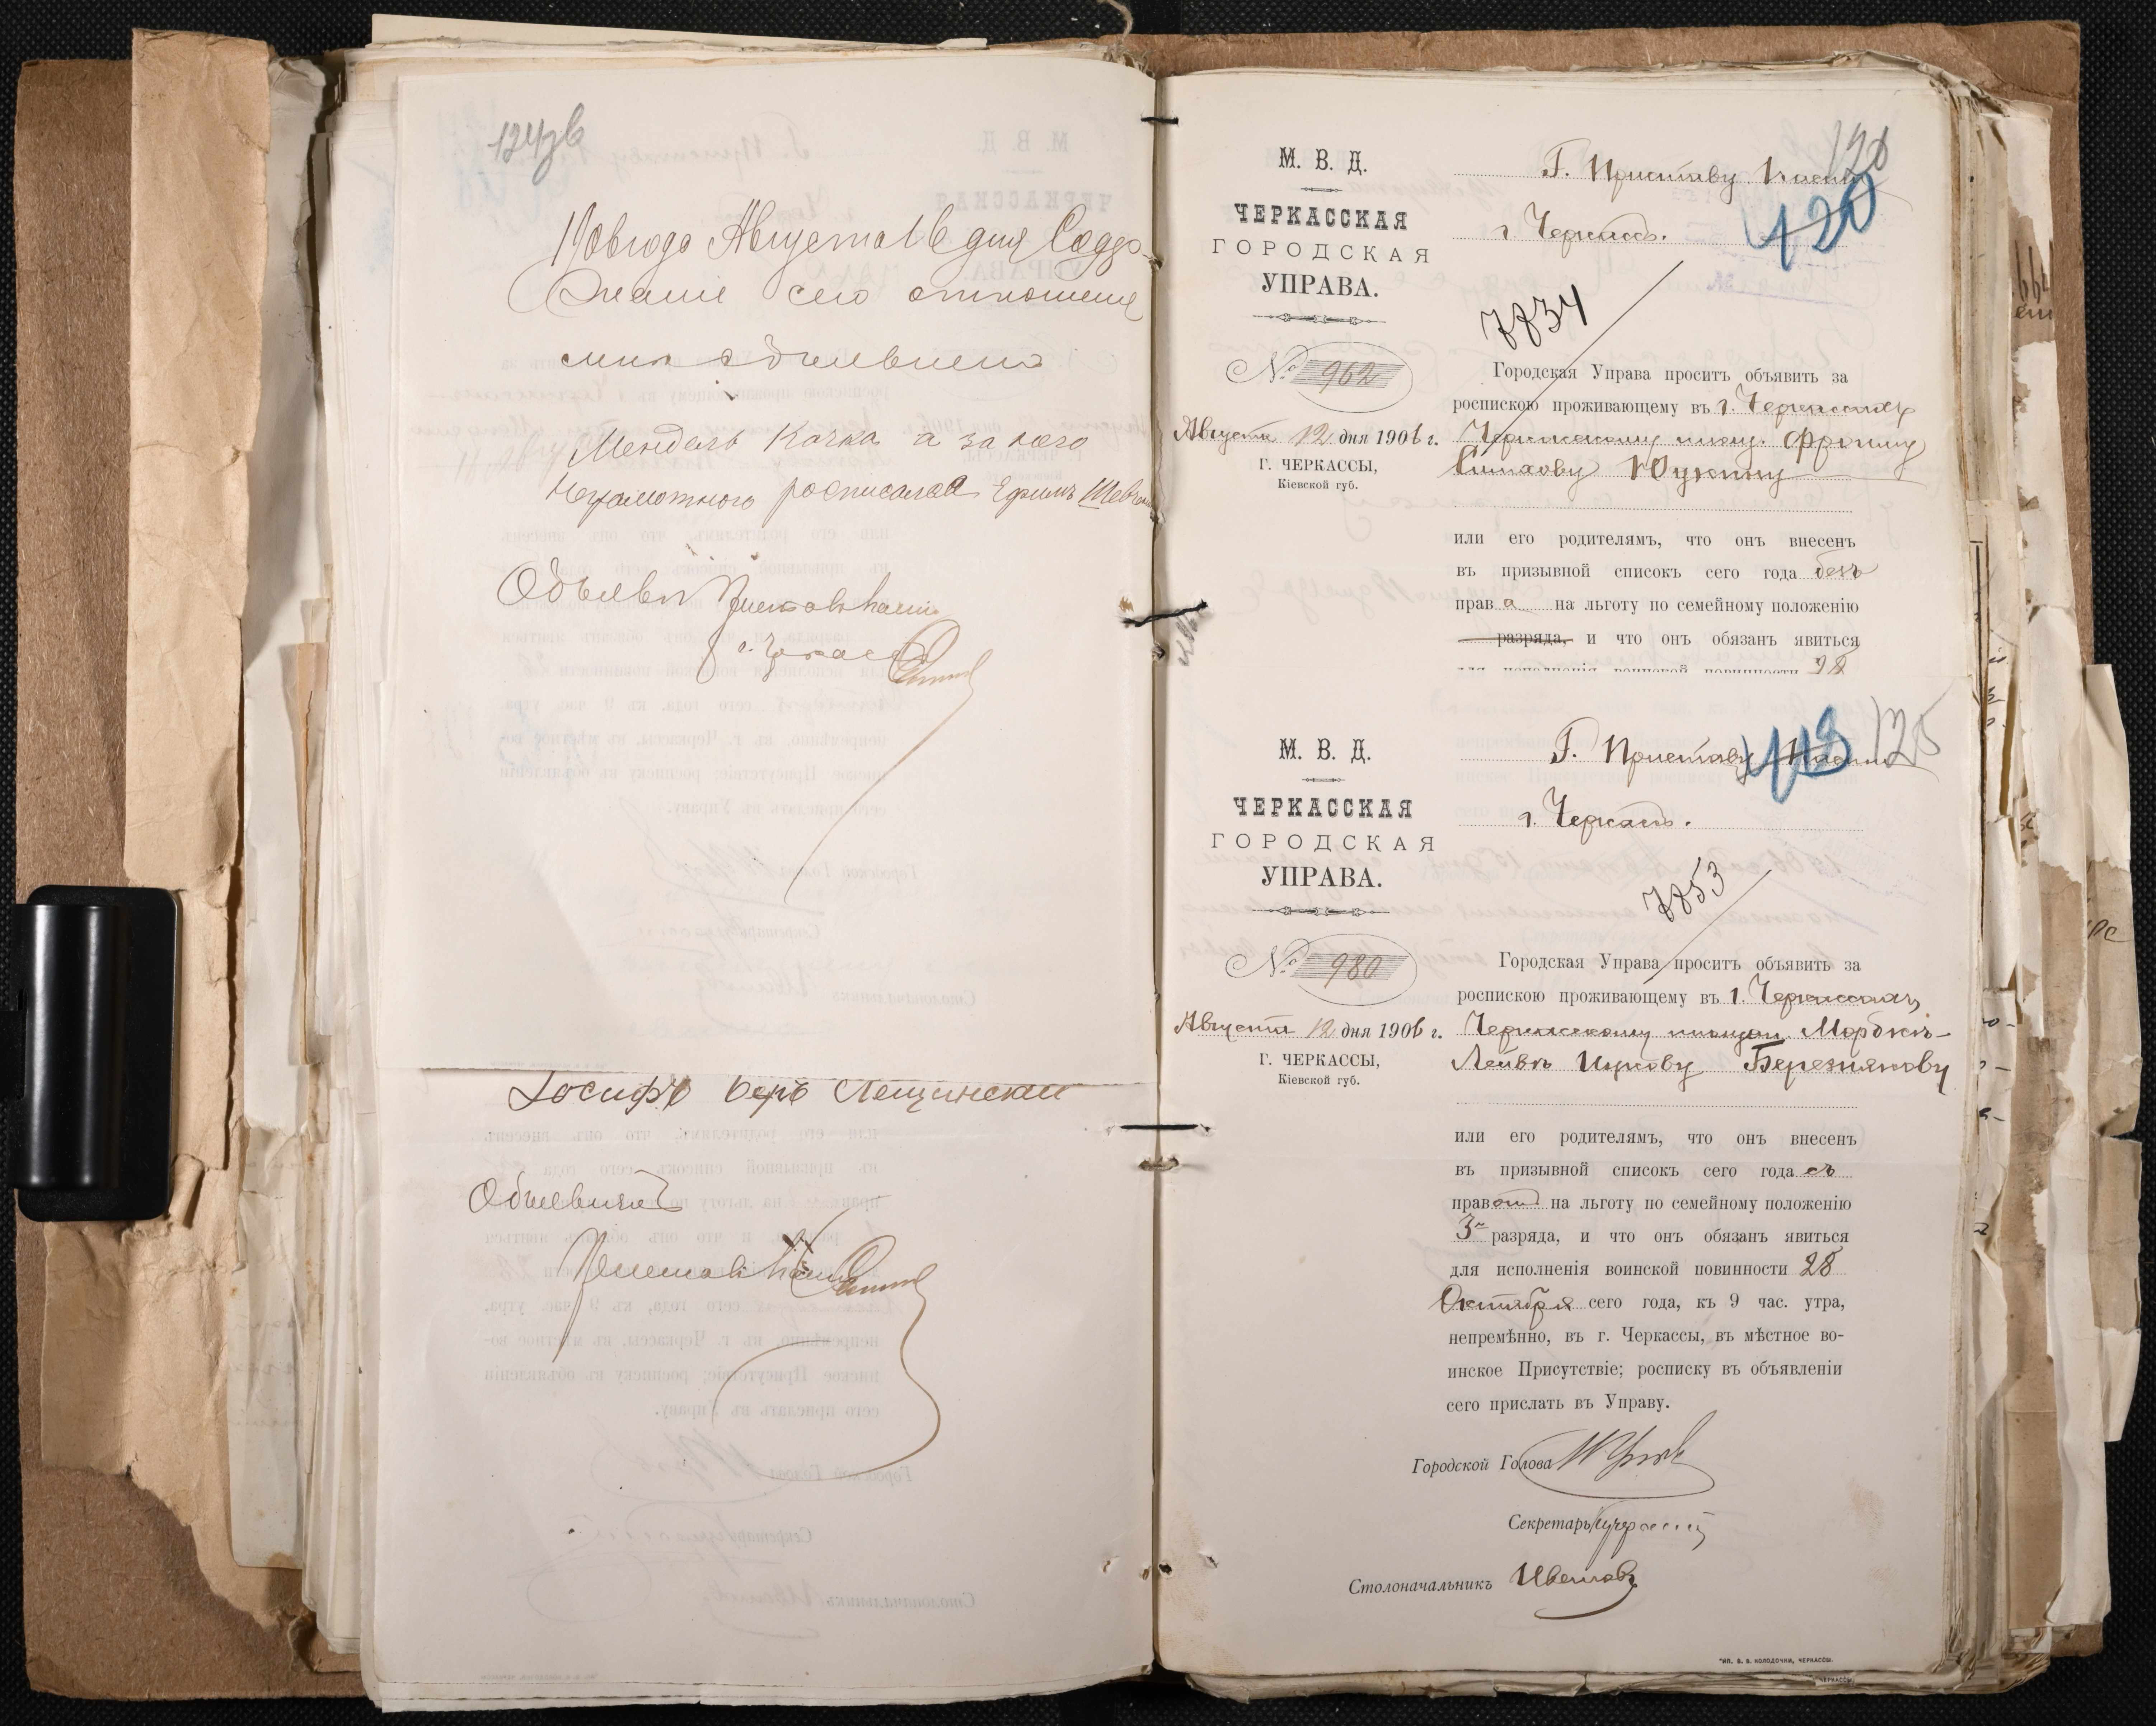 1906 года Августа 16 дня Содер-
жание сего отношения
мне объявлено
Мендель Качка а за него
неграмотного росписался Ефимъ Шевчен
Объявилъ
г. Черкассъ
Іосифъ Беръ Лещинский
Объявилъ
М. В. Д.
ЧЕРКАССКАЯ
ГОРОДСКАЯ
УПРАВА.
№ 962
Августа 12 дня 1906 г.
Г. ЧЕРКАССЫ,
Кіевской губ.
Г. Приставу
120
г. Черкассъ.
420
7834
Городская Управа проситъ объявить за
роспискою проживающему въ г. Черкассахъ
Черкасскому мѣщ.
или его родителямъ, что онъ внесенъ
въ призывной списокъ сего года безъ
права на льготу по семейному положенію
разряда, и что онъ обязанъ явиться
для исполненія воинской повинности 28
М. В. Д.
ЧЕРКАССКАЯ
ГОРОДСКАЯ
УПРАВА.
№ 980
Августа 12 дня 1906 г.
Г. ЧЕРКАССЫ,
Кіевской губ.
Г. Приставу
125
г. Черкассъ.
7853
Городская Управа проситъ объявить за
роспискою проживающему въ г. Черкассахъ,
Черкасскому мѣщан. Мордкѣ-
Лейбѣ Ицкову Березнякову
или его родителямъ, что онъ внесенъ
въ призывной списокъ сего года съ
правомъ на льготу по семейному положенію
3 разряда, и что онъ обязанъ явиться
для исполненія воинской повинности 28
Октября сего года, къ 9 час. утра,
непремѣнно, въ г. Черкассы, въ мѣстное во-
инское Присутствіе; росписку въ объявленіи
сего прислать въ Управу.
Городской Голова
Секретарь
Столоначальникъ Цвѣтковъ
ТИП. В. В. КОЛОДОЧКИ, ЧЕРКАССЫ.
ЧЕРКАССЫ